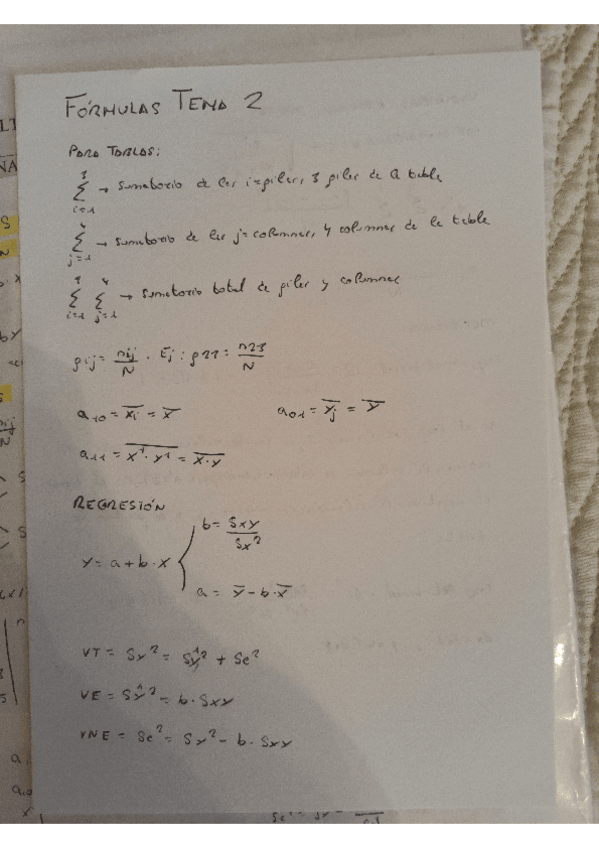 FÓRMULAS TEMA 2
PARA TABLAS:
3
∑ → Sumatorio de las i=filas, 3 filas de la tabla
i=1
4
∑ → Sumatorio de las j=columnas, 4 columnas de la tabla
j=1
∑ ∑ → Sumatorio total de filas y columnas
i=1 j=1
fij = nij/N . Ej: f23 = n23/N
a10 = x̄i = x̄ a01 = ȳj = ȳ
a11 = \overline{x¹·y¹} = \overline{x·y}
REGRESIÓN
b = Sxy/Sx²
y = a + b·x
a = ȳ - b·x̄
VT = Sy² = Sŷ² + Se²
VE = Sŷ² = b·Sxy
VNE = Se² = Sy² - b·Sxy